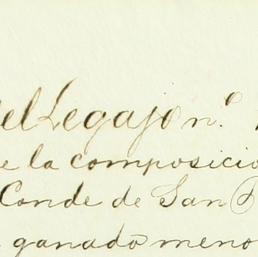 del Legajo n.º
e la composicio
Conde de San
ganado meno